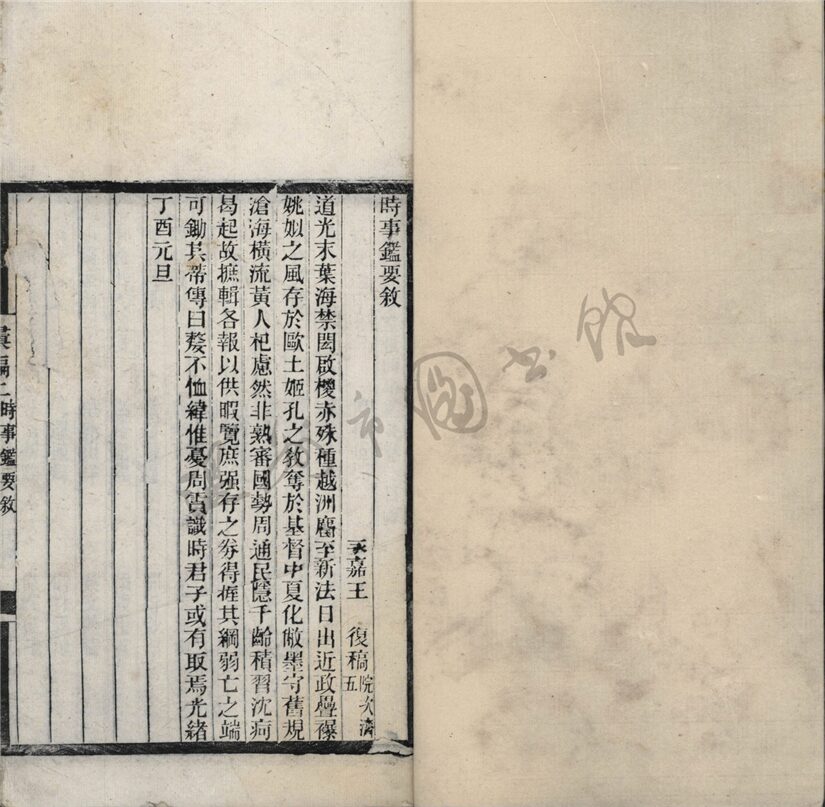 時事鑑要敘
永嘉王 復稿
院次濟
五
道光末葉海禁閎啟椶赤殊種越洲麕至新法日出近政疊襮
姚姒之風存於歐土姬孔之教奪於基督中夏化敝墨守舊規
滄海橫流黃人杞慮然非熟審國勢周通民隱千齡積習沈痾
曷起故摭輯各報以供暇覽庶强存之劵得握其綱弱亡之端
可鋤其蒂傳曰嫠不恤緯惟憂周霣識時君子或有取焉光緒
丁酉元旦
二時事鑑要敘
市圖書館